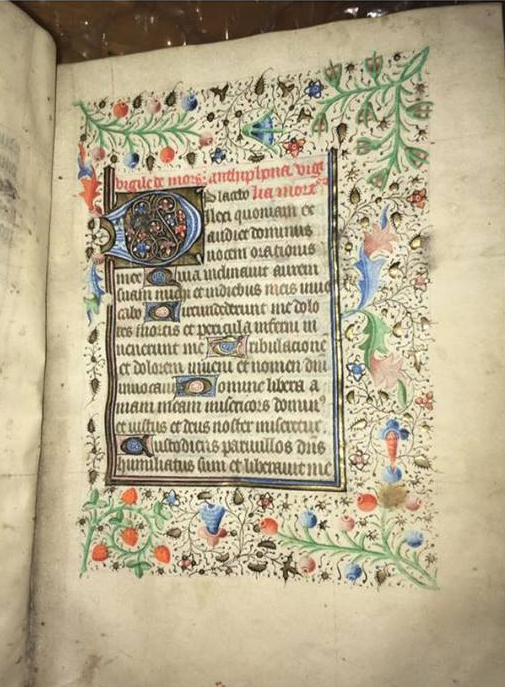 vigile de mors: anthiphona. vigi
Placebo lia mort
Dilexi quoniam ex
audiet dominus
vocem orationis
mee Quia inclinauit aurem
suam michi et in diebus meis inuo
cabo Circumdederunt me dolo
res mortis et pericula inferni in
uenerunt me Tribulacione
et dolorem inueni et nomen dni
inuocaui O domine libera a
niam meam misericors domin9
et iustus et deus noster miseretur
Custodiens paruillos dns
humiliatus sum et liberauit me